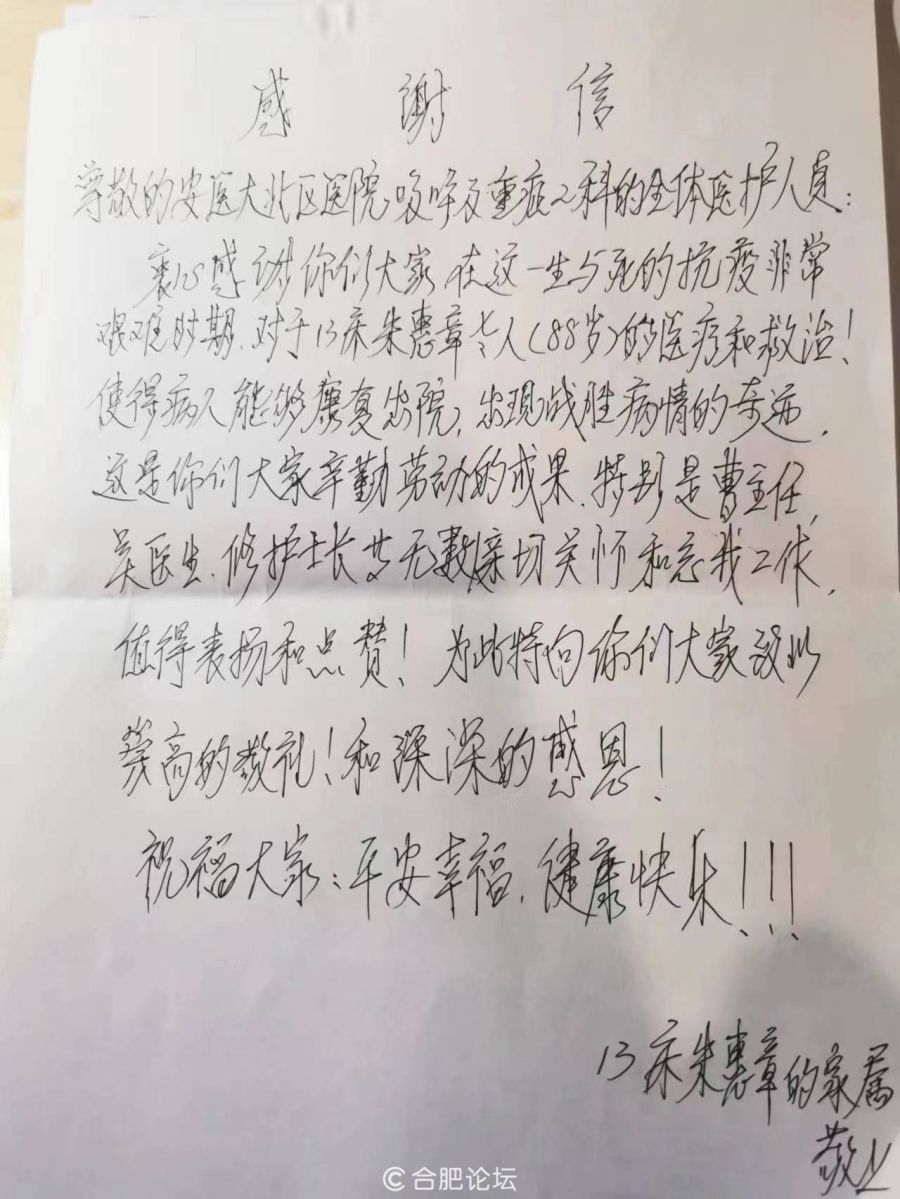 感谢信
尊敬的安医大北区医院呼吸及重症2科的全体医护人员:
衷心感谢你们大家在这一生与死的抗疫非常
艰难时期.对于13床朱惠章老人(88岁)的医疗和救治!
使得病人能够康复出院,出现战胜病情的奇迹,
这是你们大家辛勤劳动的成果.特别是曹主任,
吴医生.修护士长 无数亲切关怀和忘我工作,
值得表扬和点赞!为此特向你们大家致以
崇高的敬礼!和深深的感恩!
祝福大家:平安幸福.健康快乐!!!
13床朱惠章的家属
敬上
合肥论坛